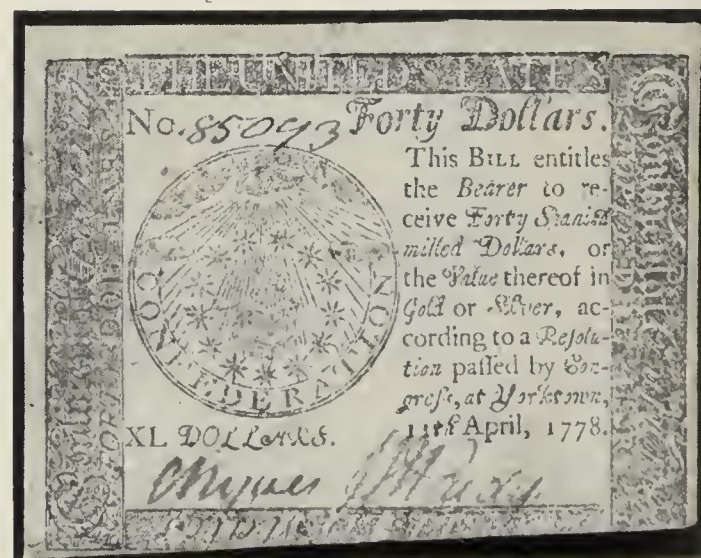 THE UNITED STATES
No. 85093 Forty Dollars.
This BILL entitles
the Bearer to re-
ceive Forty Spanish
milled Dollars, or
the Value thereof in
Gold or Silver, ac-
cording to a Reſolu-
tion paſſed by Con-
greſs, at Yorktown,
11th April, 1778.
CONFEDERATION
XL DOLLARS.